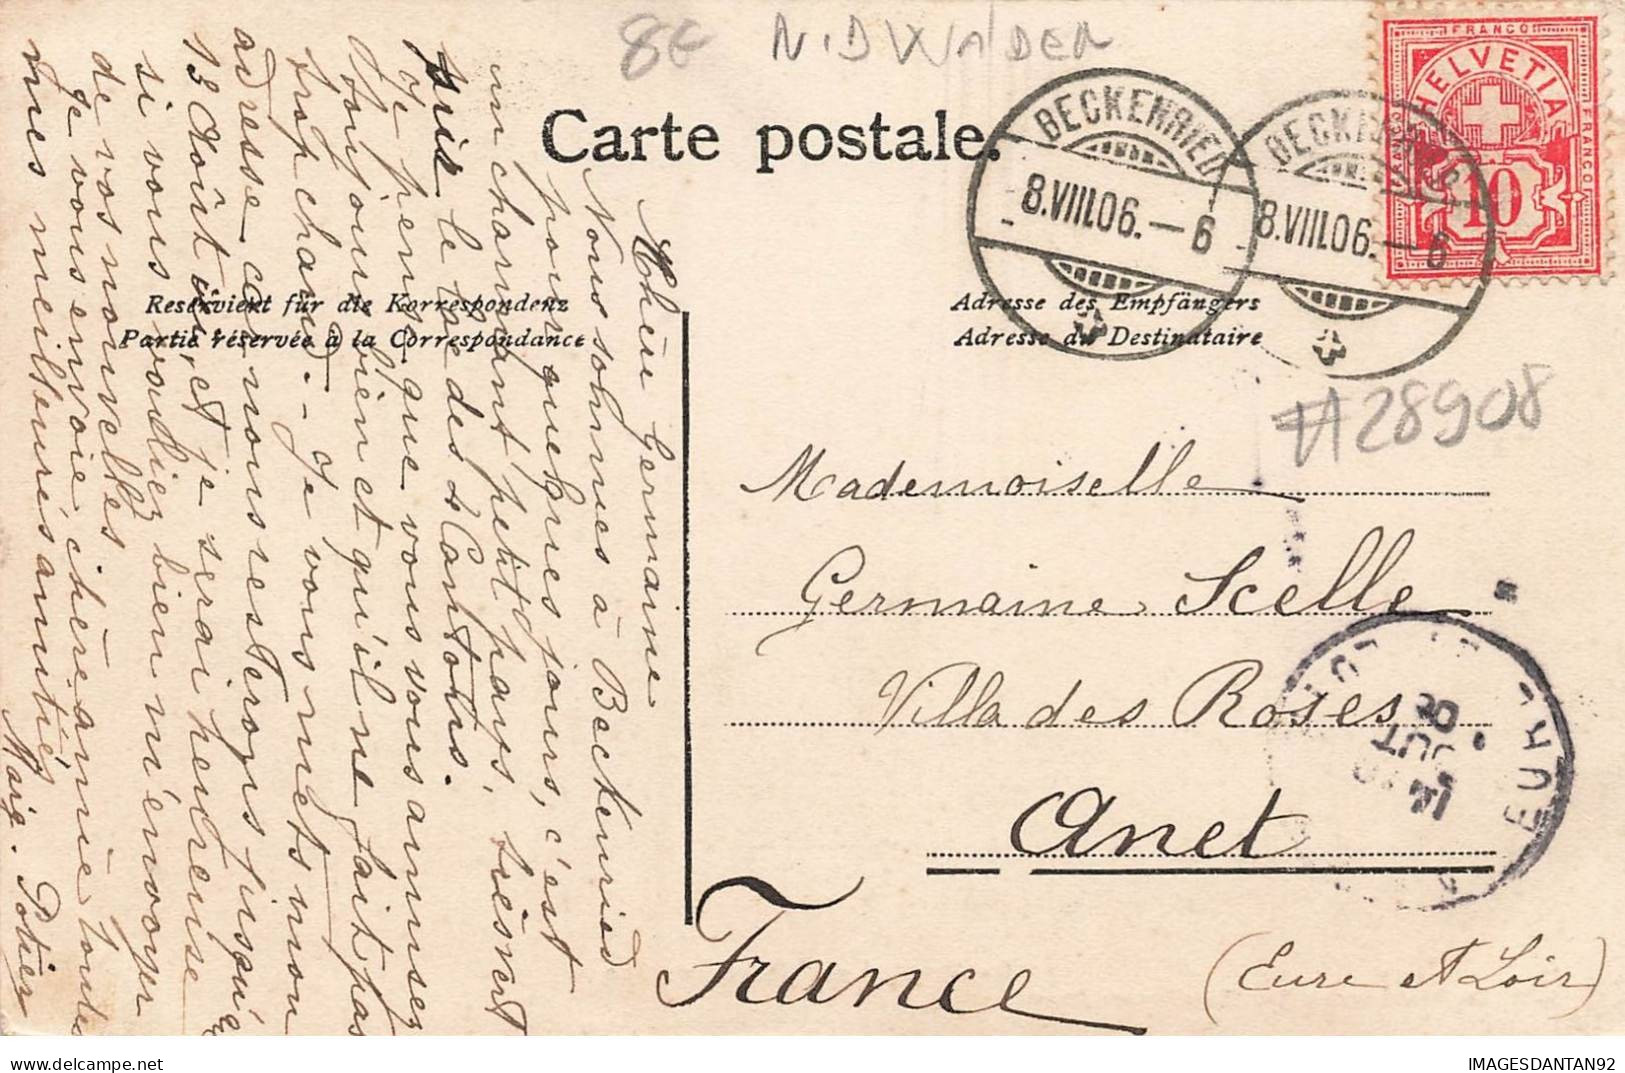 8€ NIDWALDEN
Carte postale.
FRANCO
HELVETIA
FRANCO
10
BECKENRIED
8.VIII.06.—6
BECKENRIED
8.VIII.06.—6
Reserviert für die Korrespondenz
Partie réservée à la Correspondance
Adresse des Empfängers
Adresse du Destinataire
#28908
Mademoiselle
Germaine Scelle
Villa des Roses
Anet
France
(Eure et Loir)
EURE
Chère Germaine
Nous sommes à Beckenried
pour quelques jours, c'est
un charmant petit pays,
sur le lac des 4 Cantons.
Je pense que vous vous amusez
toujours bien et qu'il ne fait pas
trop chaud. - Je vous mets mon
adresse car nous resterons jusqu'au
13 Août et je serai heureuse
si vous voudiez bien m'envoyer
de vos nouvelles.
Je vous envoie chère amie toutes
mes meilleures amitiés
Marie. Potier
IMAGESDANTAN92